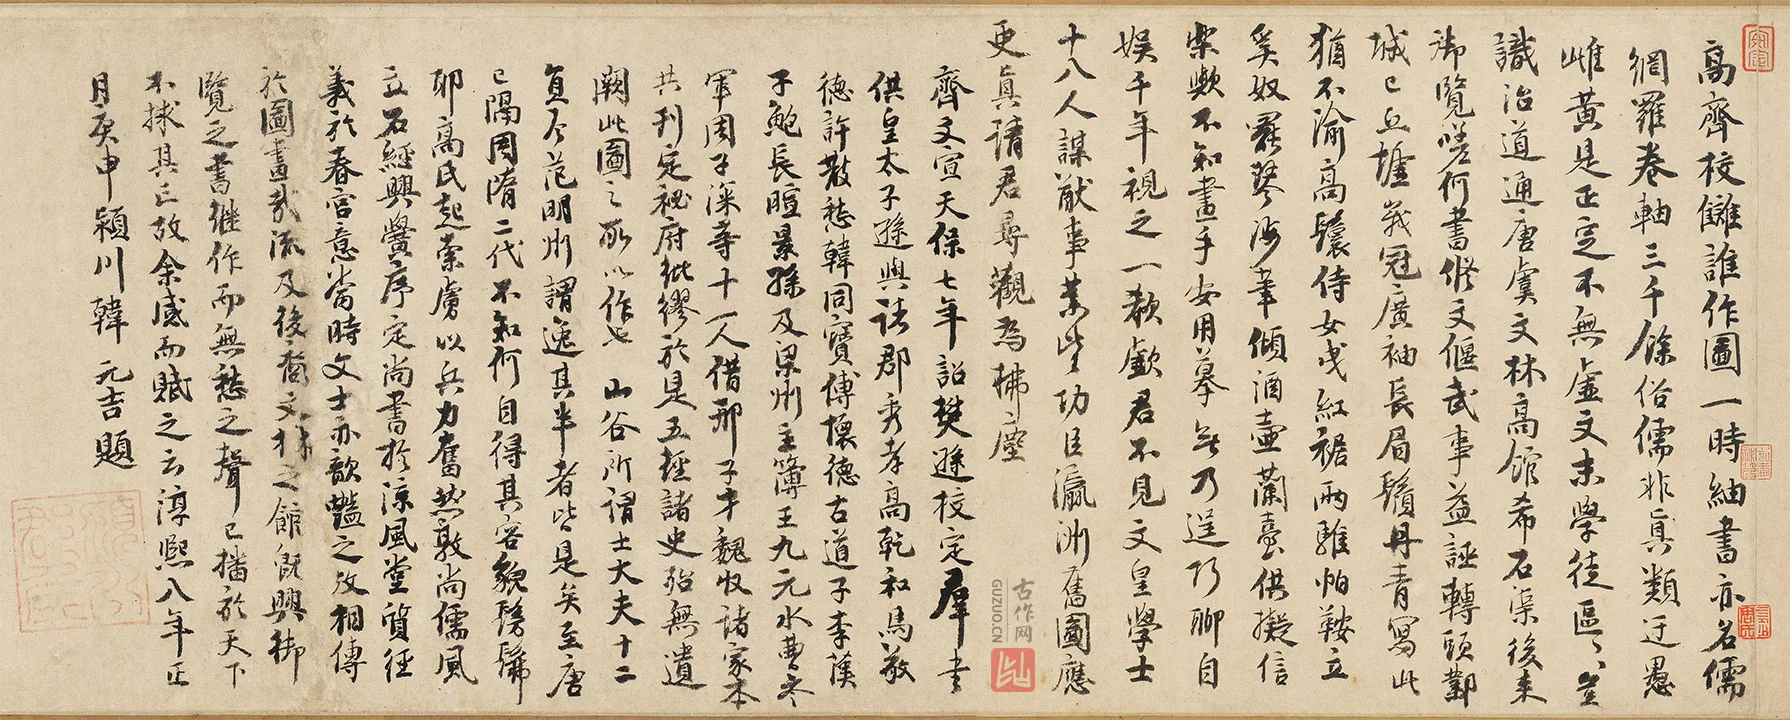 高齊校讎誰作圖一時紬書亦名儒
網羅卷軸三千餘俗儒非真類迂愚
雌黃是正定不無虛文末學徒區區豈
識治道通唐虞文林高館希石渠後來
御覽嗟何書修文偃武事益誣轉頭鄴
城已丘墟峩冠廣袖長眉鬚丹青寫此
猶不渝高鬟侍女曳紅裾兩騅帕鞍立
奚奴罷琴涉筆傾酒壺蘭臺供擬信
樂歟不知畫手安用摹無乃逞巧聊自
娛千年視之一欷歔君不見文皇學士
十八人謀猷事業皆功臣瀛洲舊圖應
更真請君尋觀為拂塵
齊文宣天保七年詔樊遜校定羣書
供皇太子遜與諸郡秀孝高乾和馬敬
德許散愁韓同寶傅懷德古道子李漢
子鮑長暄景孫及梁州主簿王九元水曹參
軍周子深等十一人借邢子才魏收諸家本
共刊定祕府紕繆於是五經諸史殆無遺
闕此圖之所以作也山谷所謂士大夫十二
員今范明州謂逸其半者皆是矣至唐
已隔周隋二代不知何自得其容貌髣髴
耶高氏起索虜以兵力奮然敦尚儒風
立石經興黌序定尚書於涼風堂質經
義於春宮意當時文士亦歆豔之故相傳
於圖畫哉流及後裔文林之館既興御
覽之書繼作而無愁之聲已播於天下
不捄其亡故余感而賦之云淳熙八年正
月庚申潁川韓元吉題
古作网
GUZUO.CN